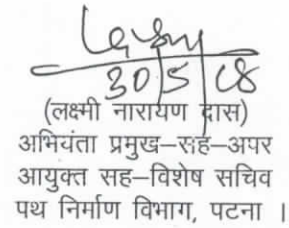 30/5/08
(लक्ष्मी नारायण दास)
अभियंता प्रमुख–सह–अपर
आयुक्त सह–विशेष सचिव
पथ निर्माण विभाग, पटना ।